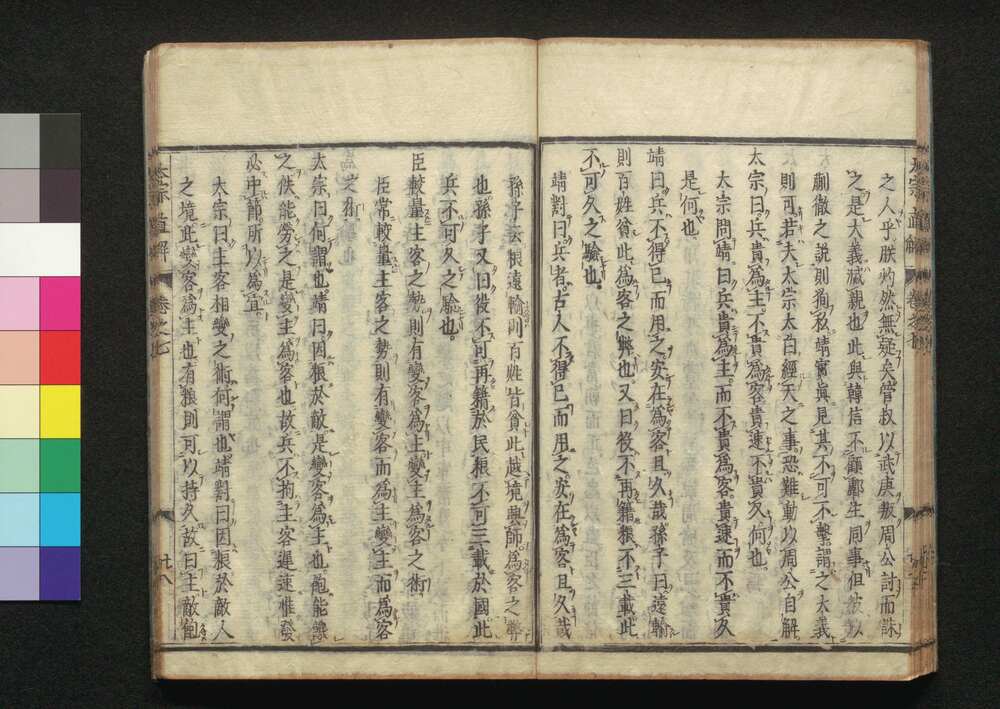 之人乎朕灼然無疑矣管叔以武庚叛周公討而誅
之是大義滅親也此與韓信不顧酈生同事但彼以
蒯徹之說則狥私靖實真見其不可不擊謂之大義
則可若夫太宗太白經天之事恐難動以周公自解
太宗曰兵貴為主不貴為客貴速不貴久何也
太宗問靖曰兵貴為主而不貴為客貴速而不貴久
是何也
靖曰兵不得已而用之安在為客且久哉孫子曰遠輸
則百姓貧此為客之弊也又曰役不再籍粮不三載此
不可久之驗也
靖對曰兵者古人不得已而用之安在為客且久哉
孫子云粮遠輸則百姓皆貧此越境興師為客之弊
也孫子又曰役不可再籍於民粮不可三載於國此
兵不可久之驗也
臣較量主客之勢則有變客為主變主為客之術
臣常較量主客之勢則有變客而為主變主而為客
之術
太宗曰何謂也靖曰因粮於敵是變客為主也飽能饑
之佚能勞之是變主為客也故兵不拘主客遲速惟發
必中節所以為宜
太宗曰主客相變之術何謂也靖對曰因粮於敵人
之境此變客為主也有粮則可以持久故曰主敵飽
太宗直解
卷之七
廿八